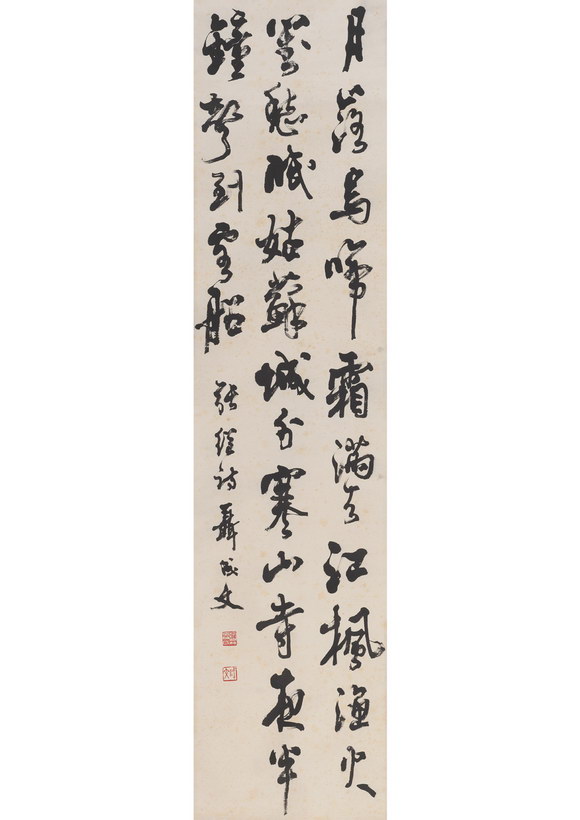 月落烏啼霜滿天江楓漁火
對愁眠姑蘇城外寒山寺夜半
鐘聲到客船
張繼詩聶成文